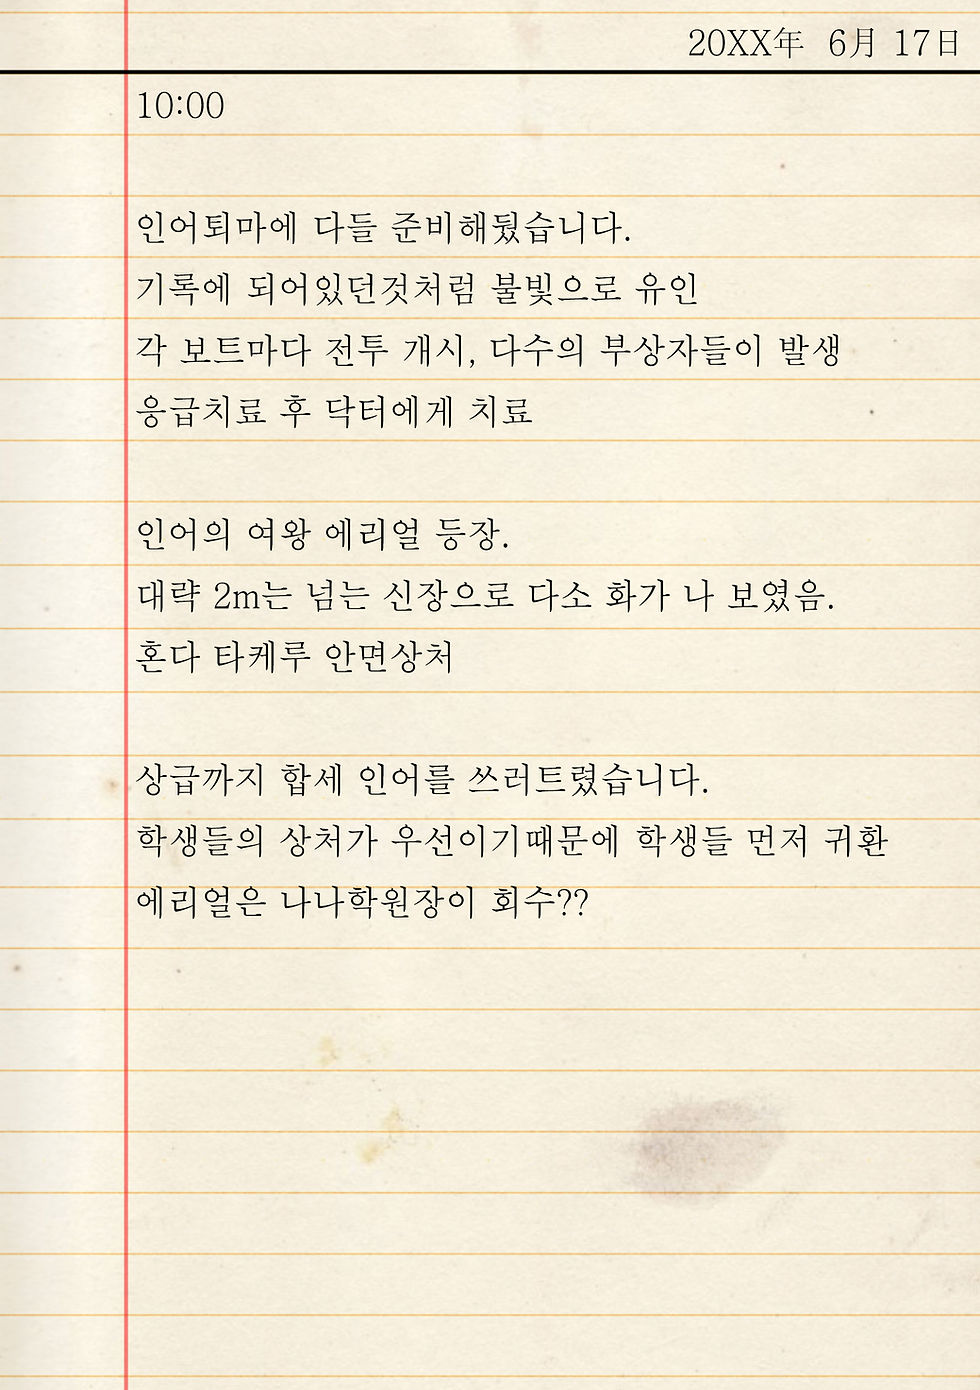 20XX年 6月 17日
10:00
인어퇴마에 다들 준비해뒀습니다.
기록에 되어있던것처럼 불빛으로 유인
각 보트마다 전투 개시, 다수의 부상자들이 발생
응급치료 후 닥터에게 치료
인어의 여왕 에리얼 등장.
대략 2m는 넘는 신장으로 다소 화가 나 보였음.
혼다 타케루 안면상처
상급까지 합세 인어를 쓰러트렸습니다.
학생들의 상처가 우선이기때문에 학생들 먼저 귀환
에리얼은 나나학원장이 회수??